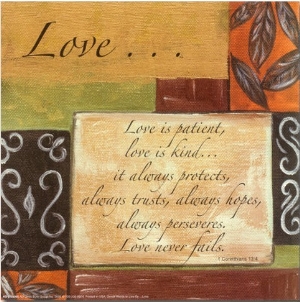 Love . . .
Love is patient,
love is kind...
it always protects,
always trusts, always hopes,
always perseveres.
Love never fails.
1 Corinthians 13:4